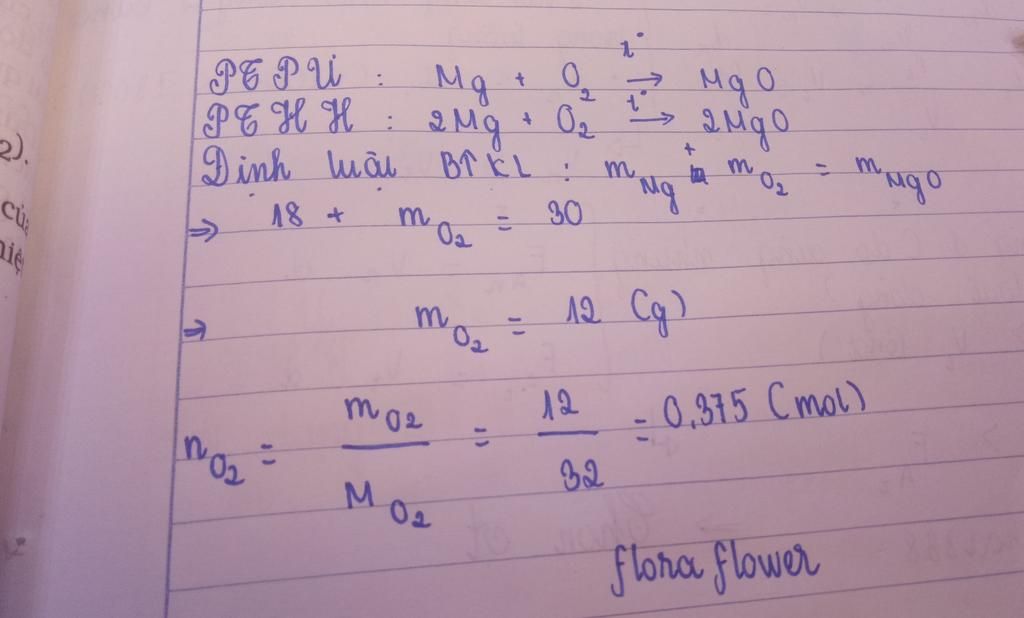 PTPƯ : Mg + O₂ →t° MgO
PTHH : 2Mg + O₂ →t° 2MgO
Định luật BTKL : m_Mg + m_O₂ = m_MgO
⇒ 18 + m_O₂ = 30
⇒ m_O₂ = 12 (g)
n_O₂ = m_O₂ / M_O₂ = 12 / 32 = 0,375 (mol)
flora flower
2).
củ
niệ